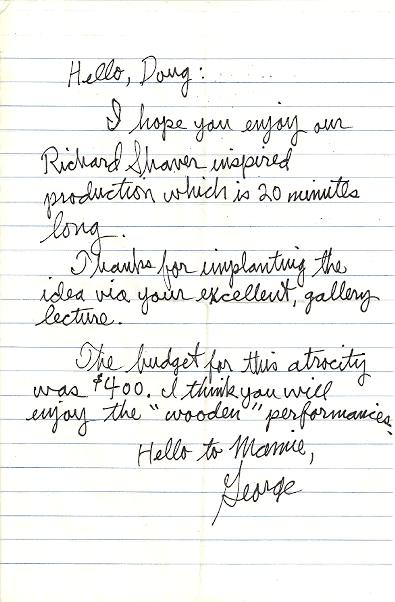 Hello, Doug:
I hope you enjoy our
Richard Shaver inspired
production which is 20 minutes
long.
Thanks for implanting the
idea via your excellent, gallery
lecture.
The budget for this atrocity
was $400. I think you will
enjoy the "wooden" performances.
Hello to Mamie,
George